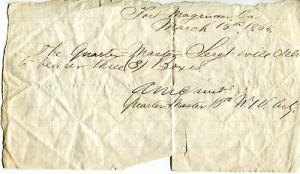 Fort Magruder, Va
March 15th 186
The Quarter Master Sergt will
to bearer three (3) Boxes
Quarter Master 15th N.Y.V. Arty.